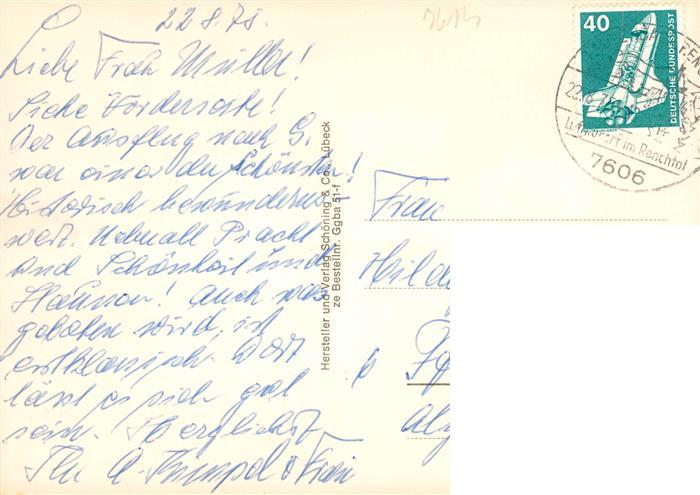 22.8.75.
Liebe Frau Müller!
Siehe Vorderseite!
Der Ausflug nach G.
war einer der Schönsten!
Historisch bewunderns
wert. Überall Pracht
und Schönheit und
Auch was
geboten wird, ist
erstklassisch. Dort
lässt es sich gut
sein. Herzlichst
Ihr A. u Frau
Hersteller und Verlag Schöning & Co., Lübeck
ze Bestellnr. Ggba 51-f
40
DEUTSCHE BUNDESPOST
22.8.75
Luftkurort im Renchtal
7606
Frau
Hilde